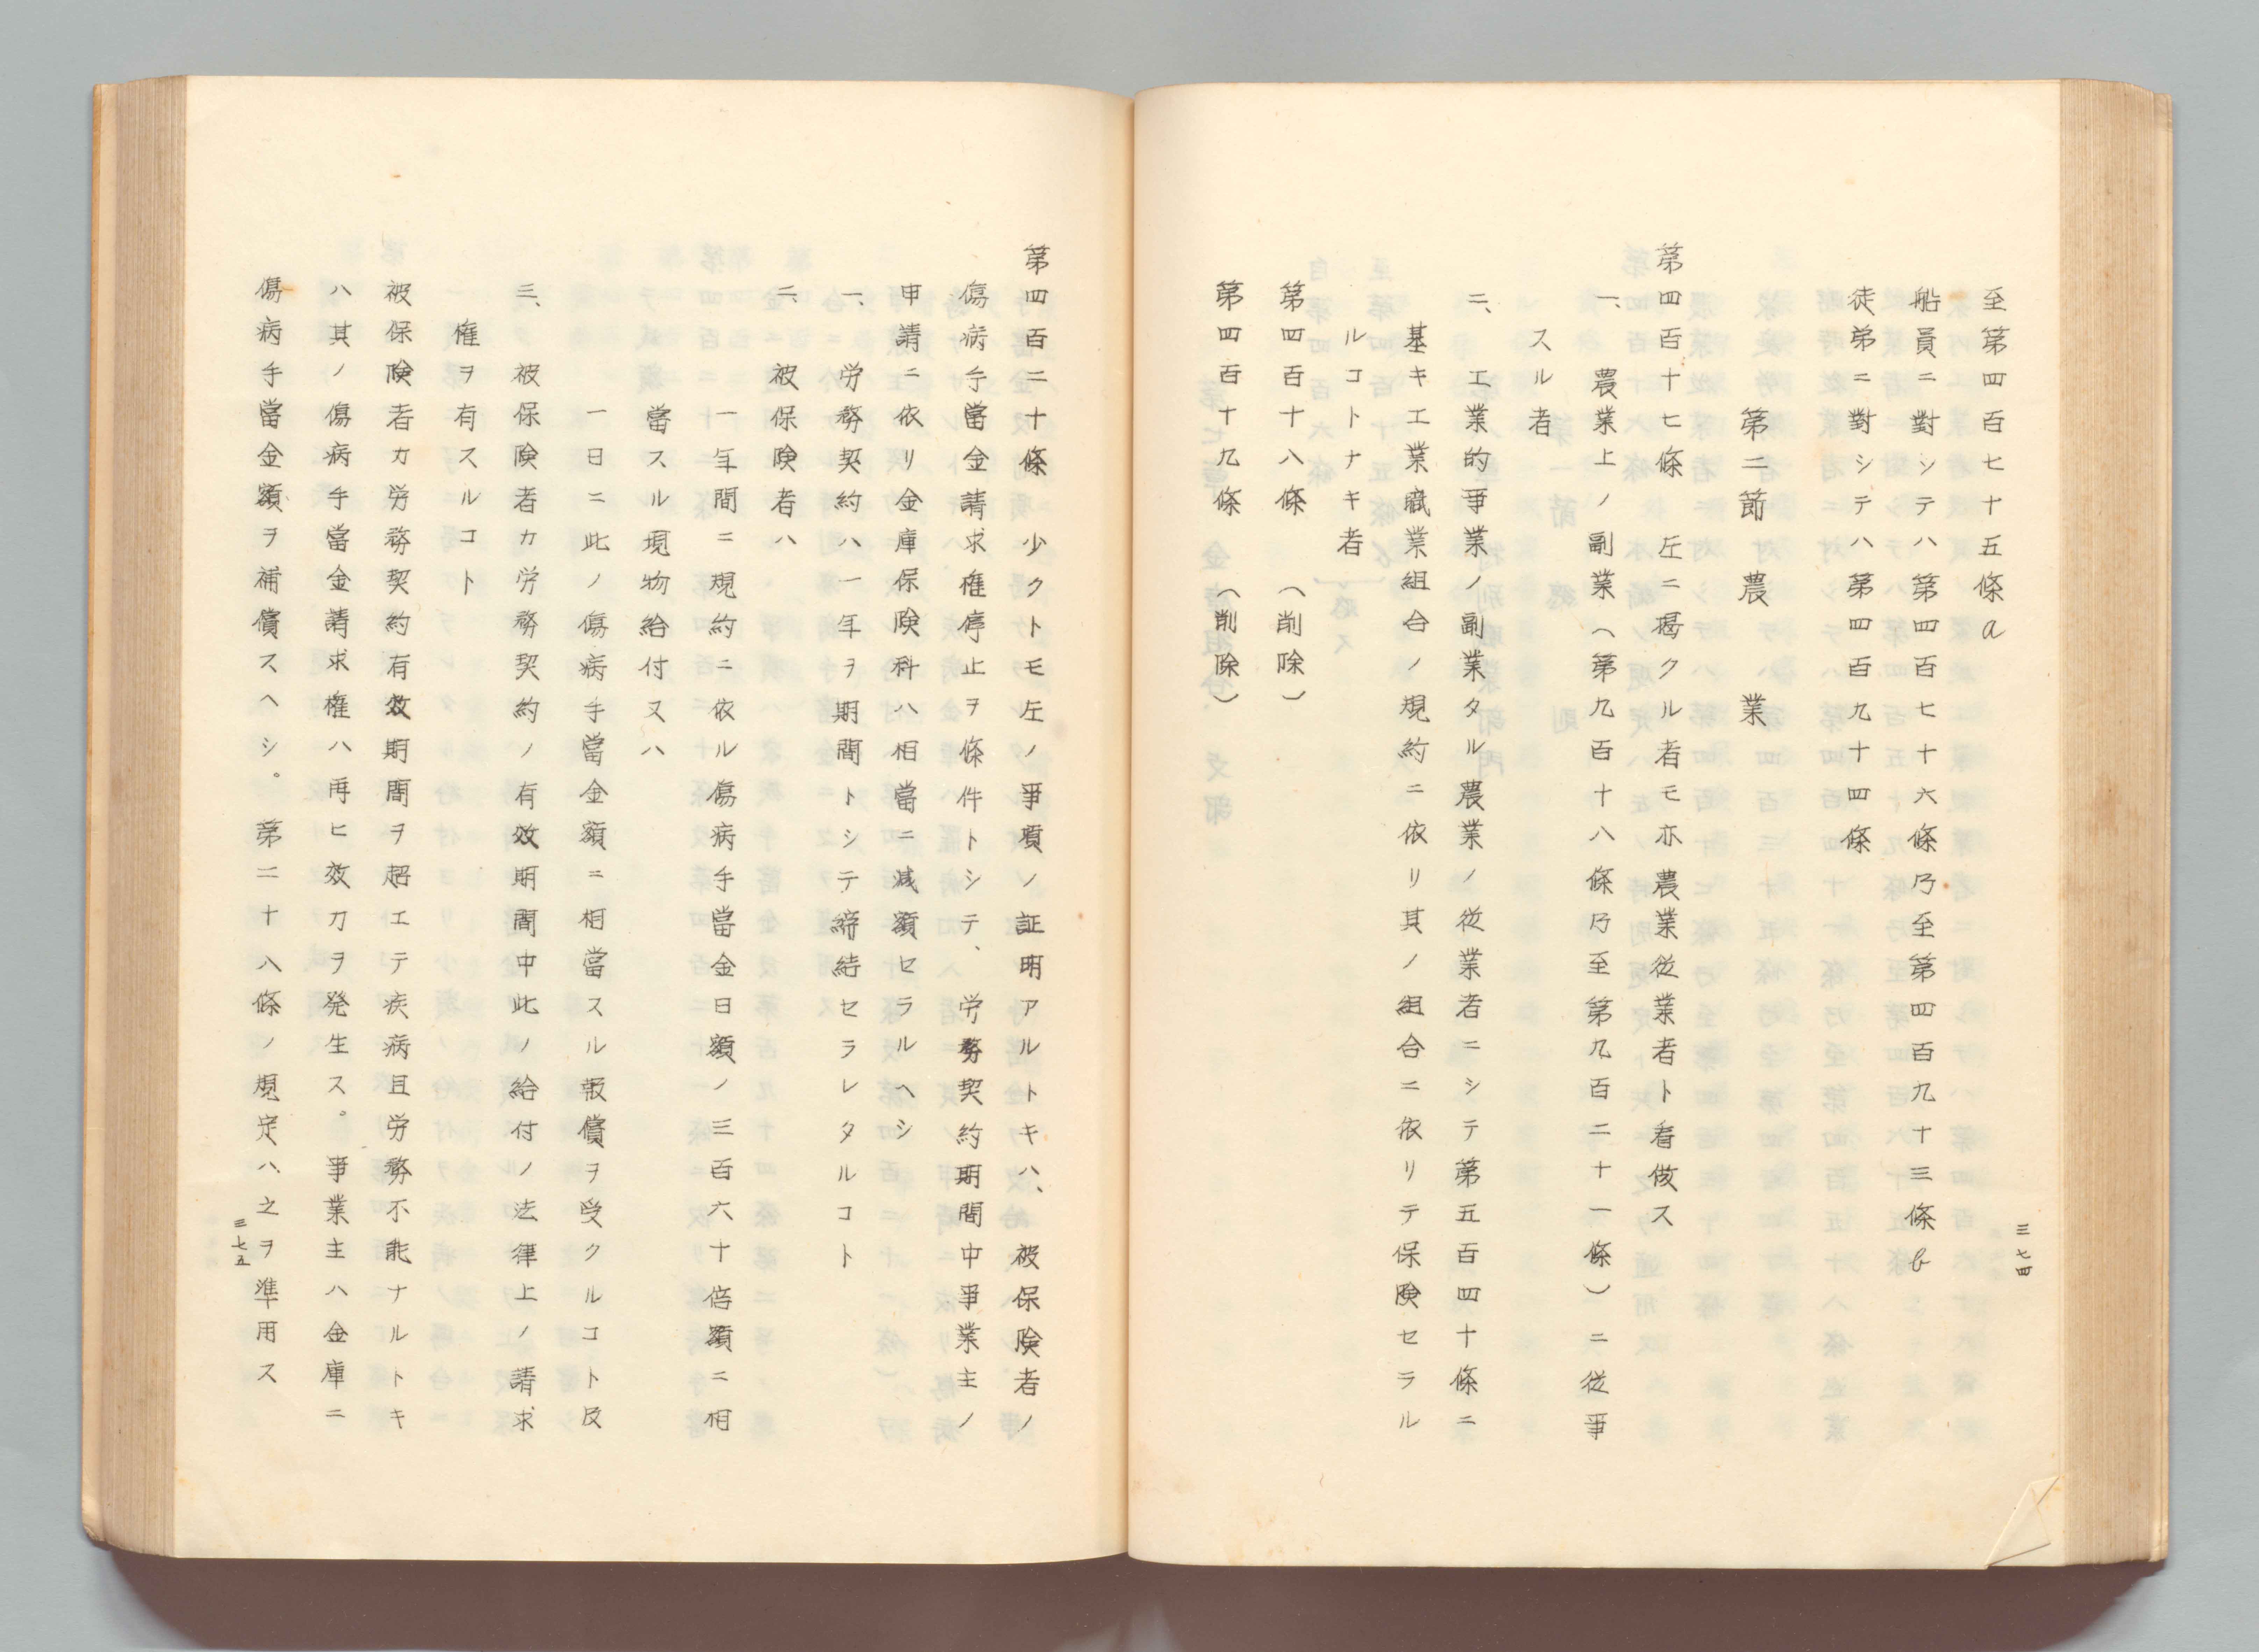 三七四
至第四百七十五條a
船員ニ對シテハ第四百七十六條乃至第四百九十三條b
徒弟ニ對シテハ第四百九十四條
第二節 農業
第四百十七條 左ニ揭クル者モ亦農業從業者ト看做ス
一、農業上ノ副業(第九百十八條乃至第九百二十一條)ニ從事
スル者
二、工業的事業ノ副業タル農業ノ從業者ニシテ第五百四十條ニ
基キ工業職業組合ノ規約ニ依リ其ノ組合ニ依リテ保険セラル
ルコトナキ者
第四百十八條 (削除)
第四百十九條 (削除)
第四百二十條 少クトモ左ノ事項ノ証明アルトキハ、被保険者ノ
傷病手當金請求権停止ヲ條件トシテ、労務契約期間中事業主ノ
申請ニ依リ金庫保険科ハ相當ニ減額セラルヘシ
一、労務契約ハ一年ヲ期間トシテ締結セラレタルコト
二、被保険者ハ
一年間ニ規約ニ依ル傷病手當金日額ノ三百六十倍額ニ相
當スル現物給付又ハ
一日ニ此ノ傷病手當金額ニ相當スル報償ヲ受クルコト及
三、被保険者カ労務契約ノ有效期間中此ノ給付ノ法律上ノ請求
権ヲ有スルコト
被保険者カ労務契約有效期間ヲ超エテ疾病且労務不能ナルトキ
ハ其ノ傷病手當金請求権ハ再ヒ效力ヲ発生ス。事業主ハ金庫ニ
傷病手當金額ヲ補償スヘシ。第二十八條ノ規定ハ之ヲ準用ス
三七五